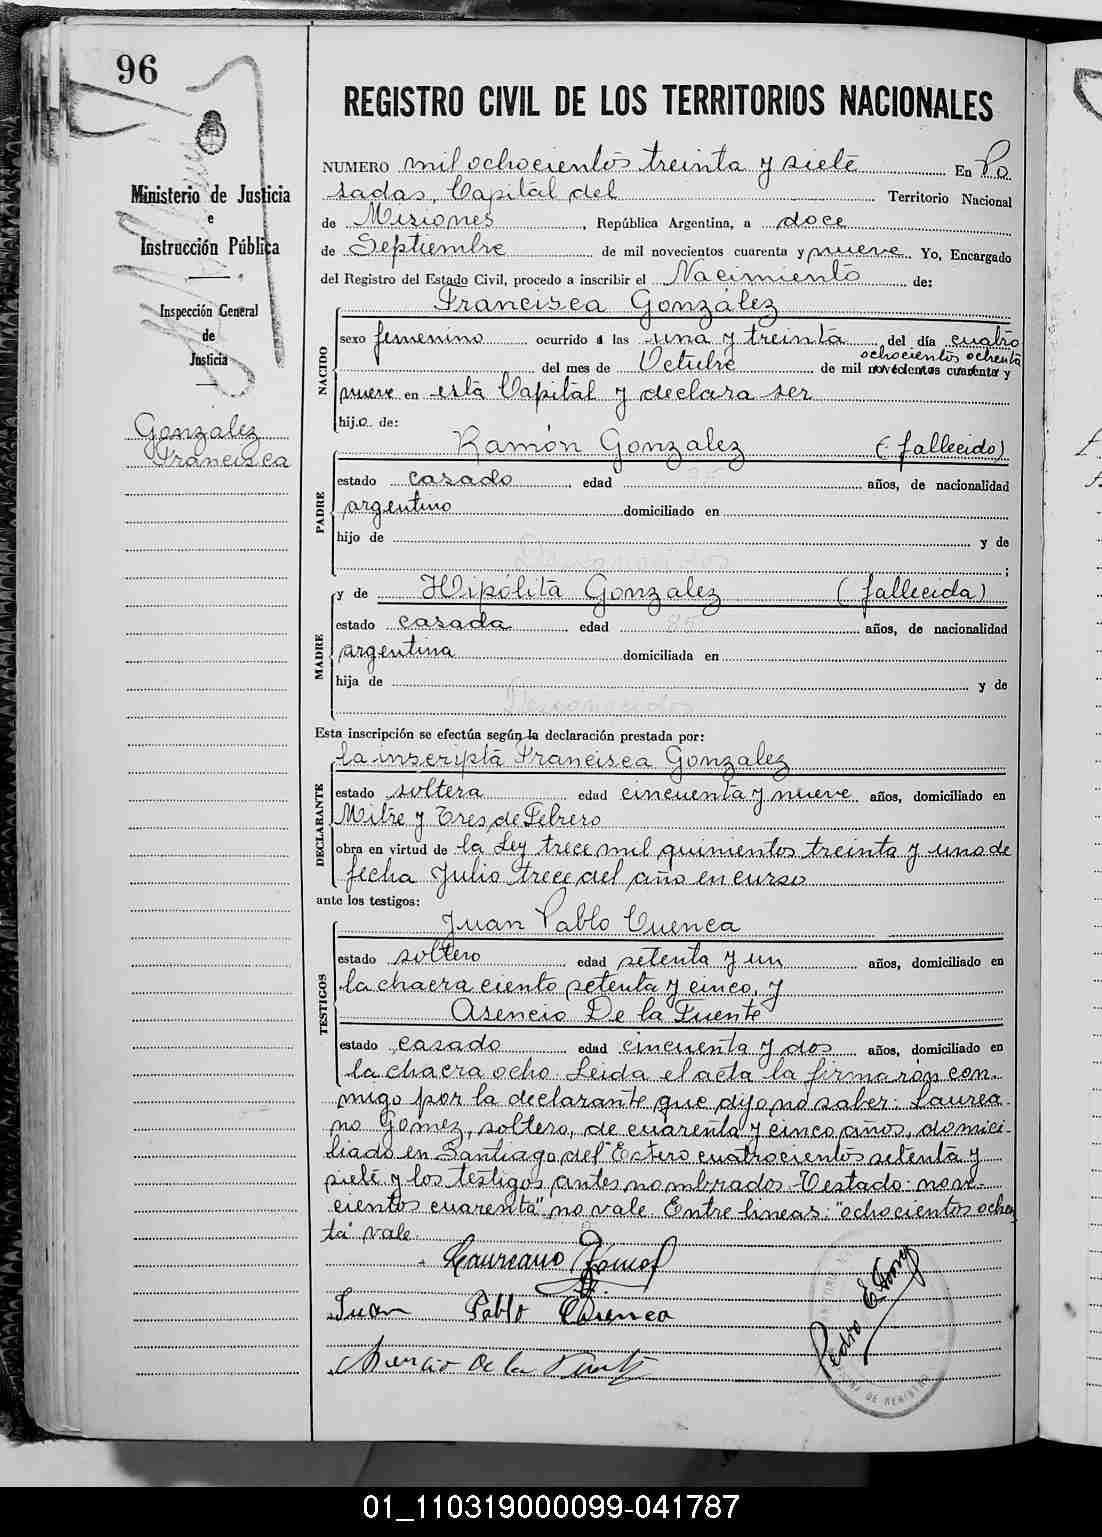 96
REGISTRO CIVIL DE LOS TERRITORIOS NACIONALES
Ministerio de Justicia
e
Instrucción Pública
Inspección General
de
Justicia
Gonzalez
Francisca
NUMERO mil ochocientos treinta y siete En Po
sadas, Capital del Territorio Nacional
de Misiones, República Argentina, a doce
de Septiembre de mil novecientos cuarenta y nueve Yo, Encargado
del Registro del Estado Civil, procedo a inscribir el Nacimiento de:
NACIDO
Francisca González
sexo femenino ocurrido a las una y treinta del día cuatro
ochocientos ochenta
del mes de Octubre de mil novecientos cuarenta y
nueve en esta Capital y declara ser
hij.a de:
PADRE
Ramón Gonzalez (fallecido)
estado casado edad años, de nacionalidad
argentino domiciliado en
hijo de y de
Desconocidos ;
MADRE
y de Hipólita Gonzalez (fallecida)
estado casada edad 85 años, de nacionalidad
argentina domiciliada en
hija de y de
Desconocidos
Esta inscripción se efectúa según la declaración prestada por:
DECLARANTE
la inscripta Francisca Gonzalez
estado soltera edad cincuenta y nueve años, domiciliado en
Mitre y Tres de Febrero
obra en virtud de la Ley trece mil quinientos treinta y uno de
fecha Julio trece del año en curso
ante los testigos:
TESTIGOS
Juan Pablo Cuenca
estado soltero edad setenta y un años, domiciliado en
la chacra ciento setenta y cinco, y
Asencio De la Fuente
estado casado edad cincuenta y dos años, domiciliado en
la chacra ocho. Leida el acta la firmarón con
migo por la declarante que dijo no saber: Laurea
no Gomez, soltero, de cuarenta y cinco años, domici-
liado en Santiago del Estero cuatrocientos setenta y
siete y los testigos antes nombrados. Testado: nove-
cientos cuarenta" no vale. Entre lineas: "ochocientos ochen
ta" vale
Laureano Gomez
Juan Pablo Cuenca
Asencio de la Fuente
Pedro E.
DE REGISTRO
01_110319000099-041787